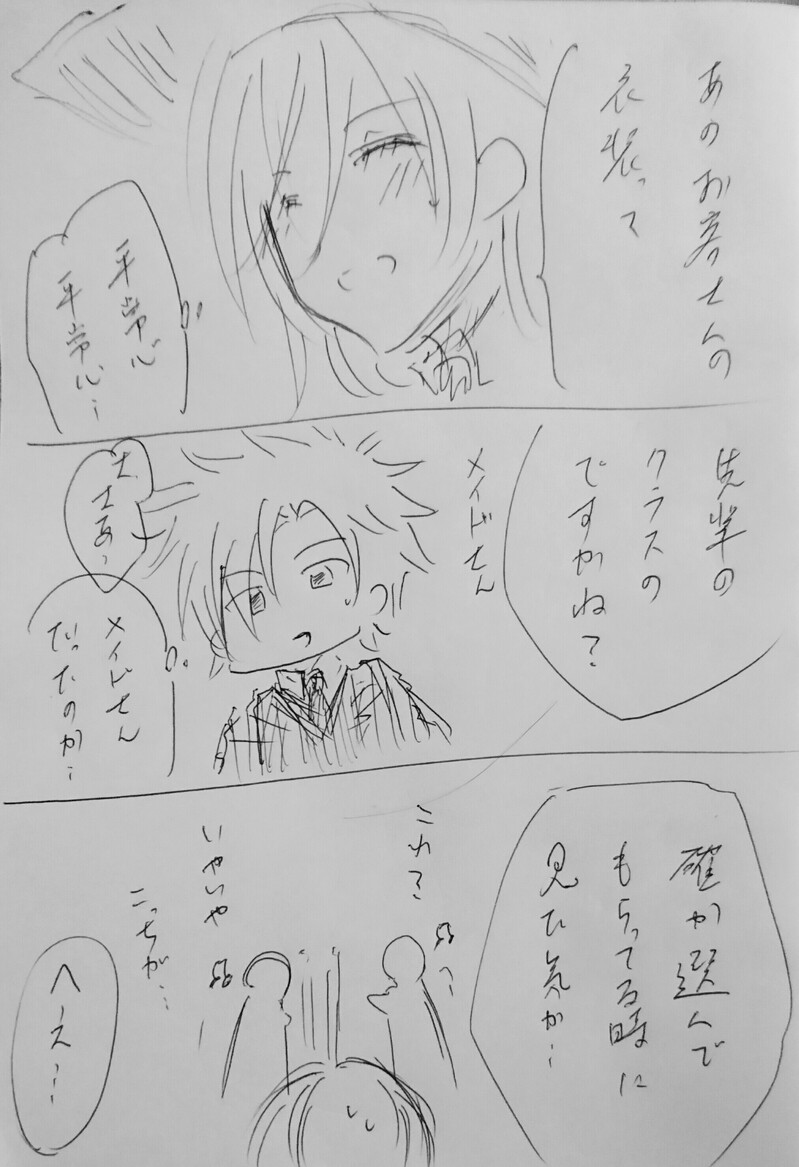 あのお客さんの
衣装って
平常心
平常心…
先輩の
クラスの
ですかね?
メイドさん
さ、さあっ
メイドさん
だったのか…
確か選んで
もらってる時に
見た気が…
これ?
いやいや
こっちが…
へーえ…